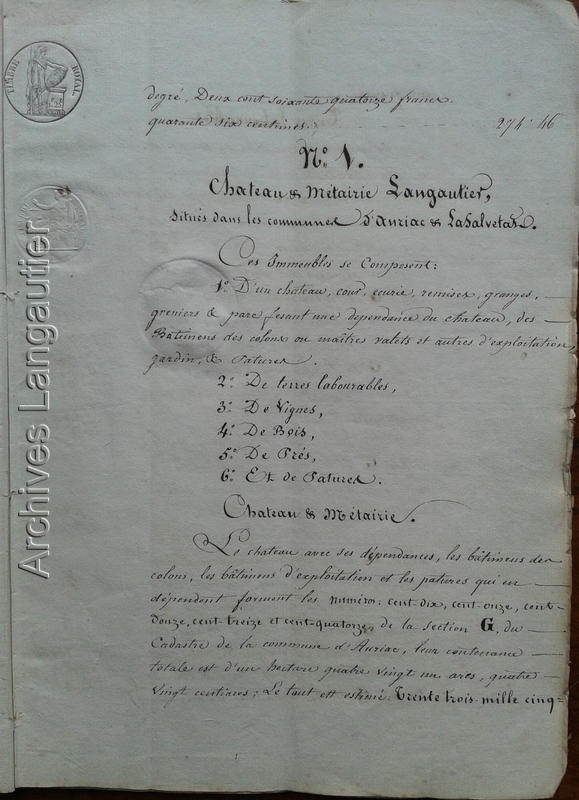 TIMBRE ROYAL
degré, Deux cent soixante quatorze francs
quarante six centimes. 274.46
N.º 1.
Chateau & Métairie Langautier,
Situés dans les communes D'Auriac & LaSalvetat.
Ces Immeubles se Composent:
1º D'un château, cour, ecurie, remises, granges,
greniers & parc fesant une dependance du chateau, des
Bâtimens des colons ou maîtres valets et autres d'exploitation,
jardin, & Patures.
2º De terres labourables,
3º De Vignes,
4º De Bois,
5º De Prés,
6º Et de Patures.
Chateau & Métairie.
Le chateau avec ses dépendances, les bâtimens des
colons, les bâtimens d'exploitation et les patures qui en
dépendent forment les numéros: cent dix, cent onze, cent-
douze, cent treize et cent-quatorze, de la section G, du
Cadastre de la commune d'Auriac, leur contenance
totale est d'un hectare quatre vingt un ares, quatre
vingt centiares; Le tout est estimé: Trente trois mille cinq=
Archives Langautier